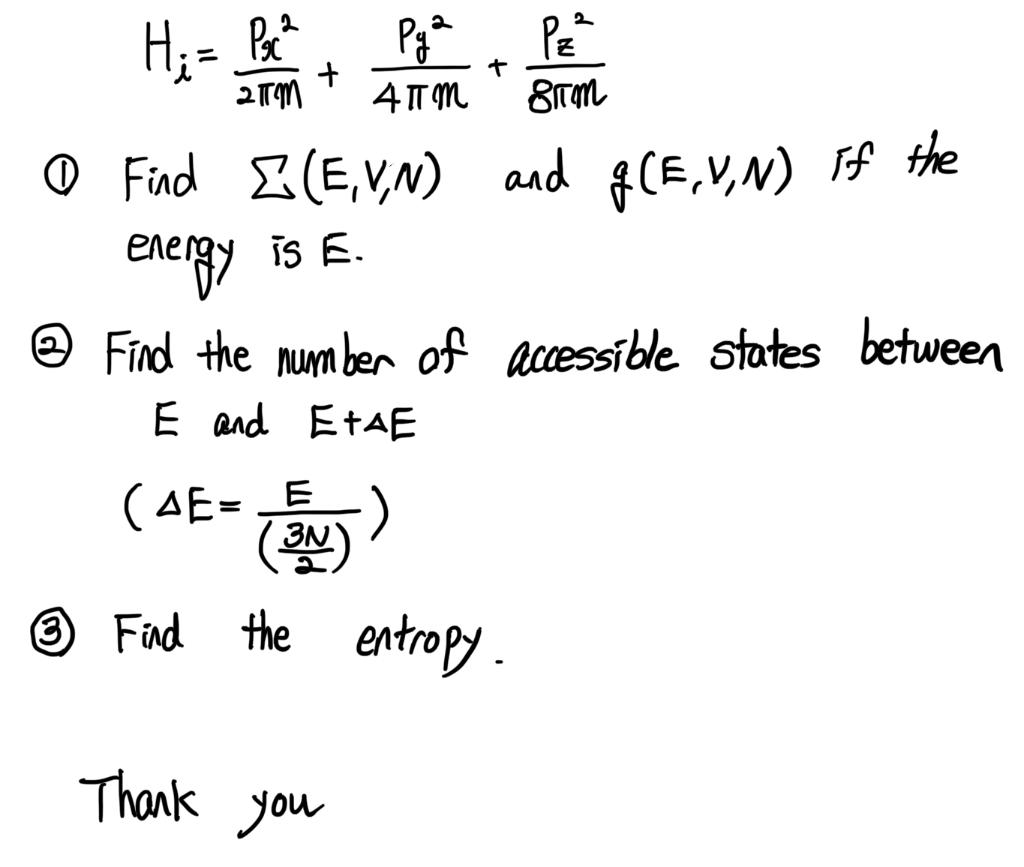 Hᵢ = Px²/2πm + Py²/4πm + Pz²/8πm
① Find Σ(E,V,N) and g(E,V,N) if the
energy is E.
② Find the number of accessible states between
E and E+ΔE
(ΔE = E/(3N/2))
③ Find the entropy.
Thank you